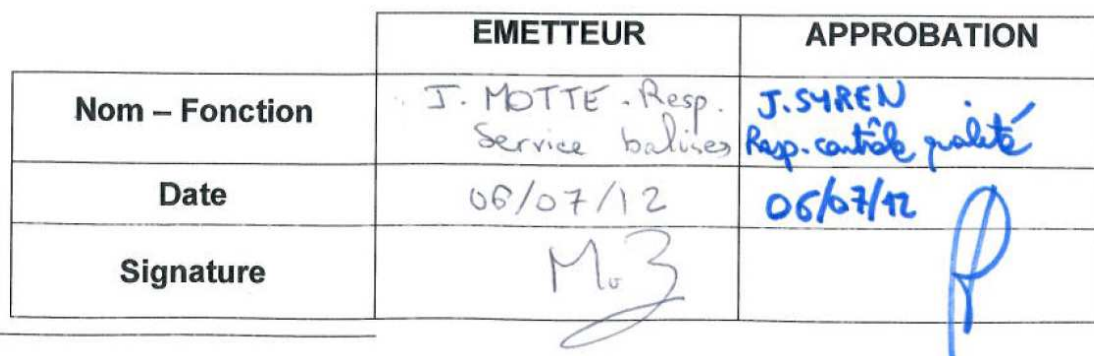 EMETTEUR APPROBATION
Nom – Fonction J. MOTTE - Resp. J. SYREN
Service balises Resp. contrôle qualité
Date 06/07/12 06/07/12
Signature